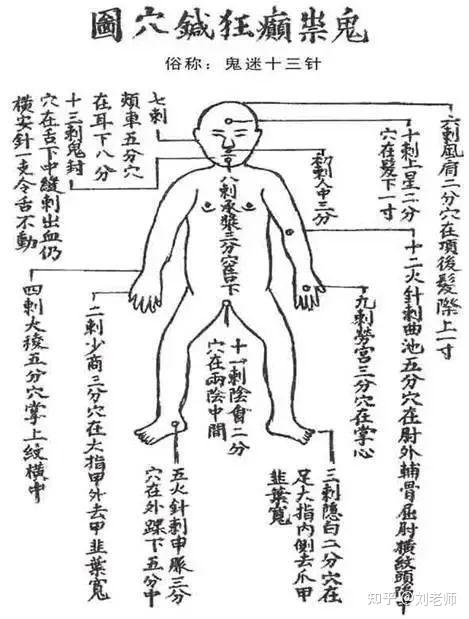 鬼祟癲狂鍼穴圖
俗称：鬼迷十三针
六刺風府二分穴在項後髮際上一寸
十刺上星二分
穴在髮下一寸
初刺人中三分
八刺承漿三分穴唇下
七刺
頰車五分穴
在耳下八分
十三刺鬼封
穴在舌下中縫刺出血仍
橫安針一支令舌不動
十二火針刺曲池五分穴在肘外輔骨屈肘橫紋頭
九刺勞宮三分穴在掌心
十一刺陰會二分
穴在兩陰中間
二刺少商三分穴在大指甲外去甲韭葉寬
四刺大稜五分穴掌上紋橫中
三刺隱白二分穴在
足大指內側去爪甲
韭葉寬
五火鍼刺申脈三分
穴在外踝下五分中
知乎 @刘老师